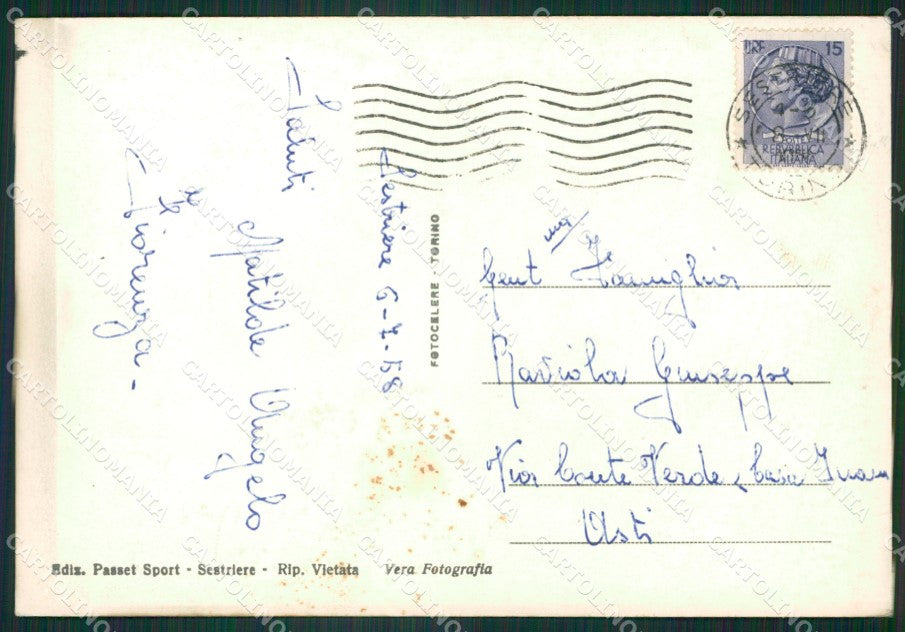 Sestriere 6-7-58
Saluti
Matilde Angelo
e Fiorenza -
Gent ma Famiglia
Raviola Giuseppe
Via Conte Verde, Casa
Asti
FOTOCELERE . TORINO
Ediz. Passet Sport - Sestriere - Rip. Vietata Vera Fotografia
LIRE 15
POSTE
REPVBBLICA
ITALIANA
SESTRIERE
TORINO
CARTOLINOMANIA